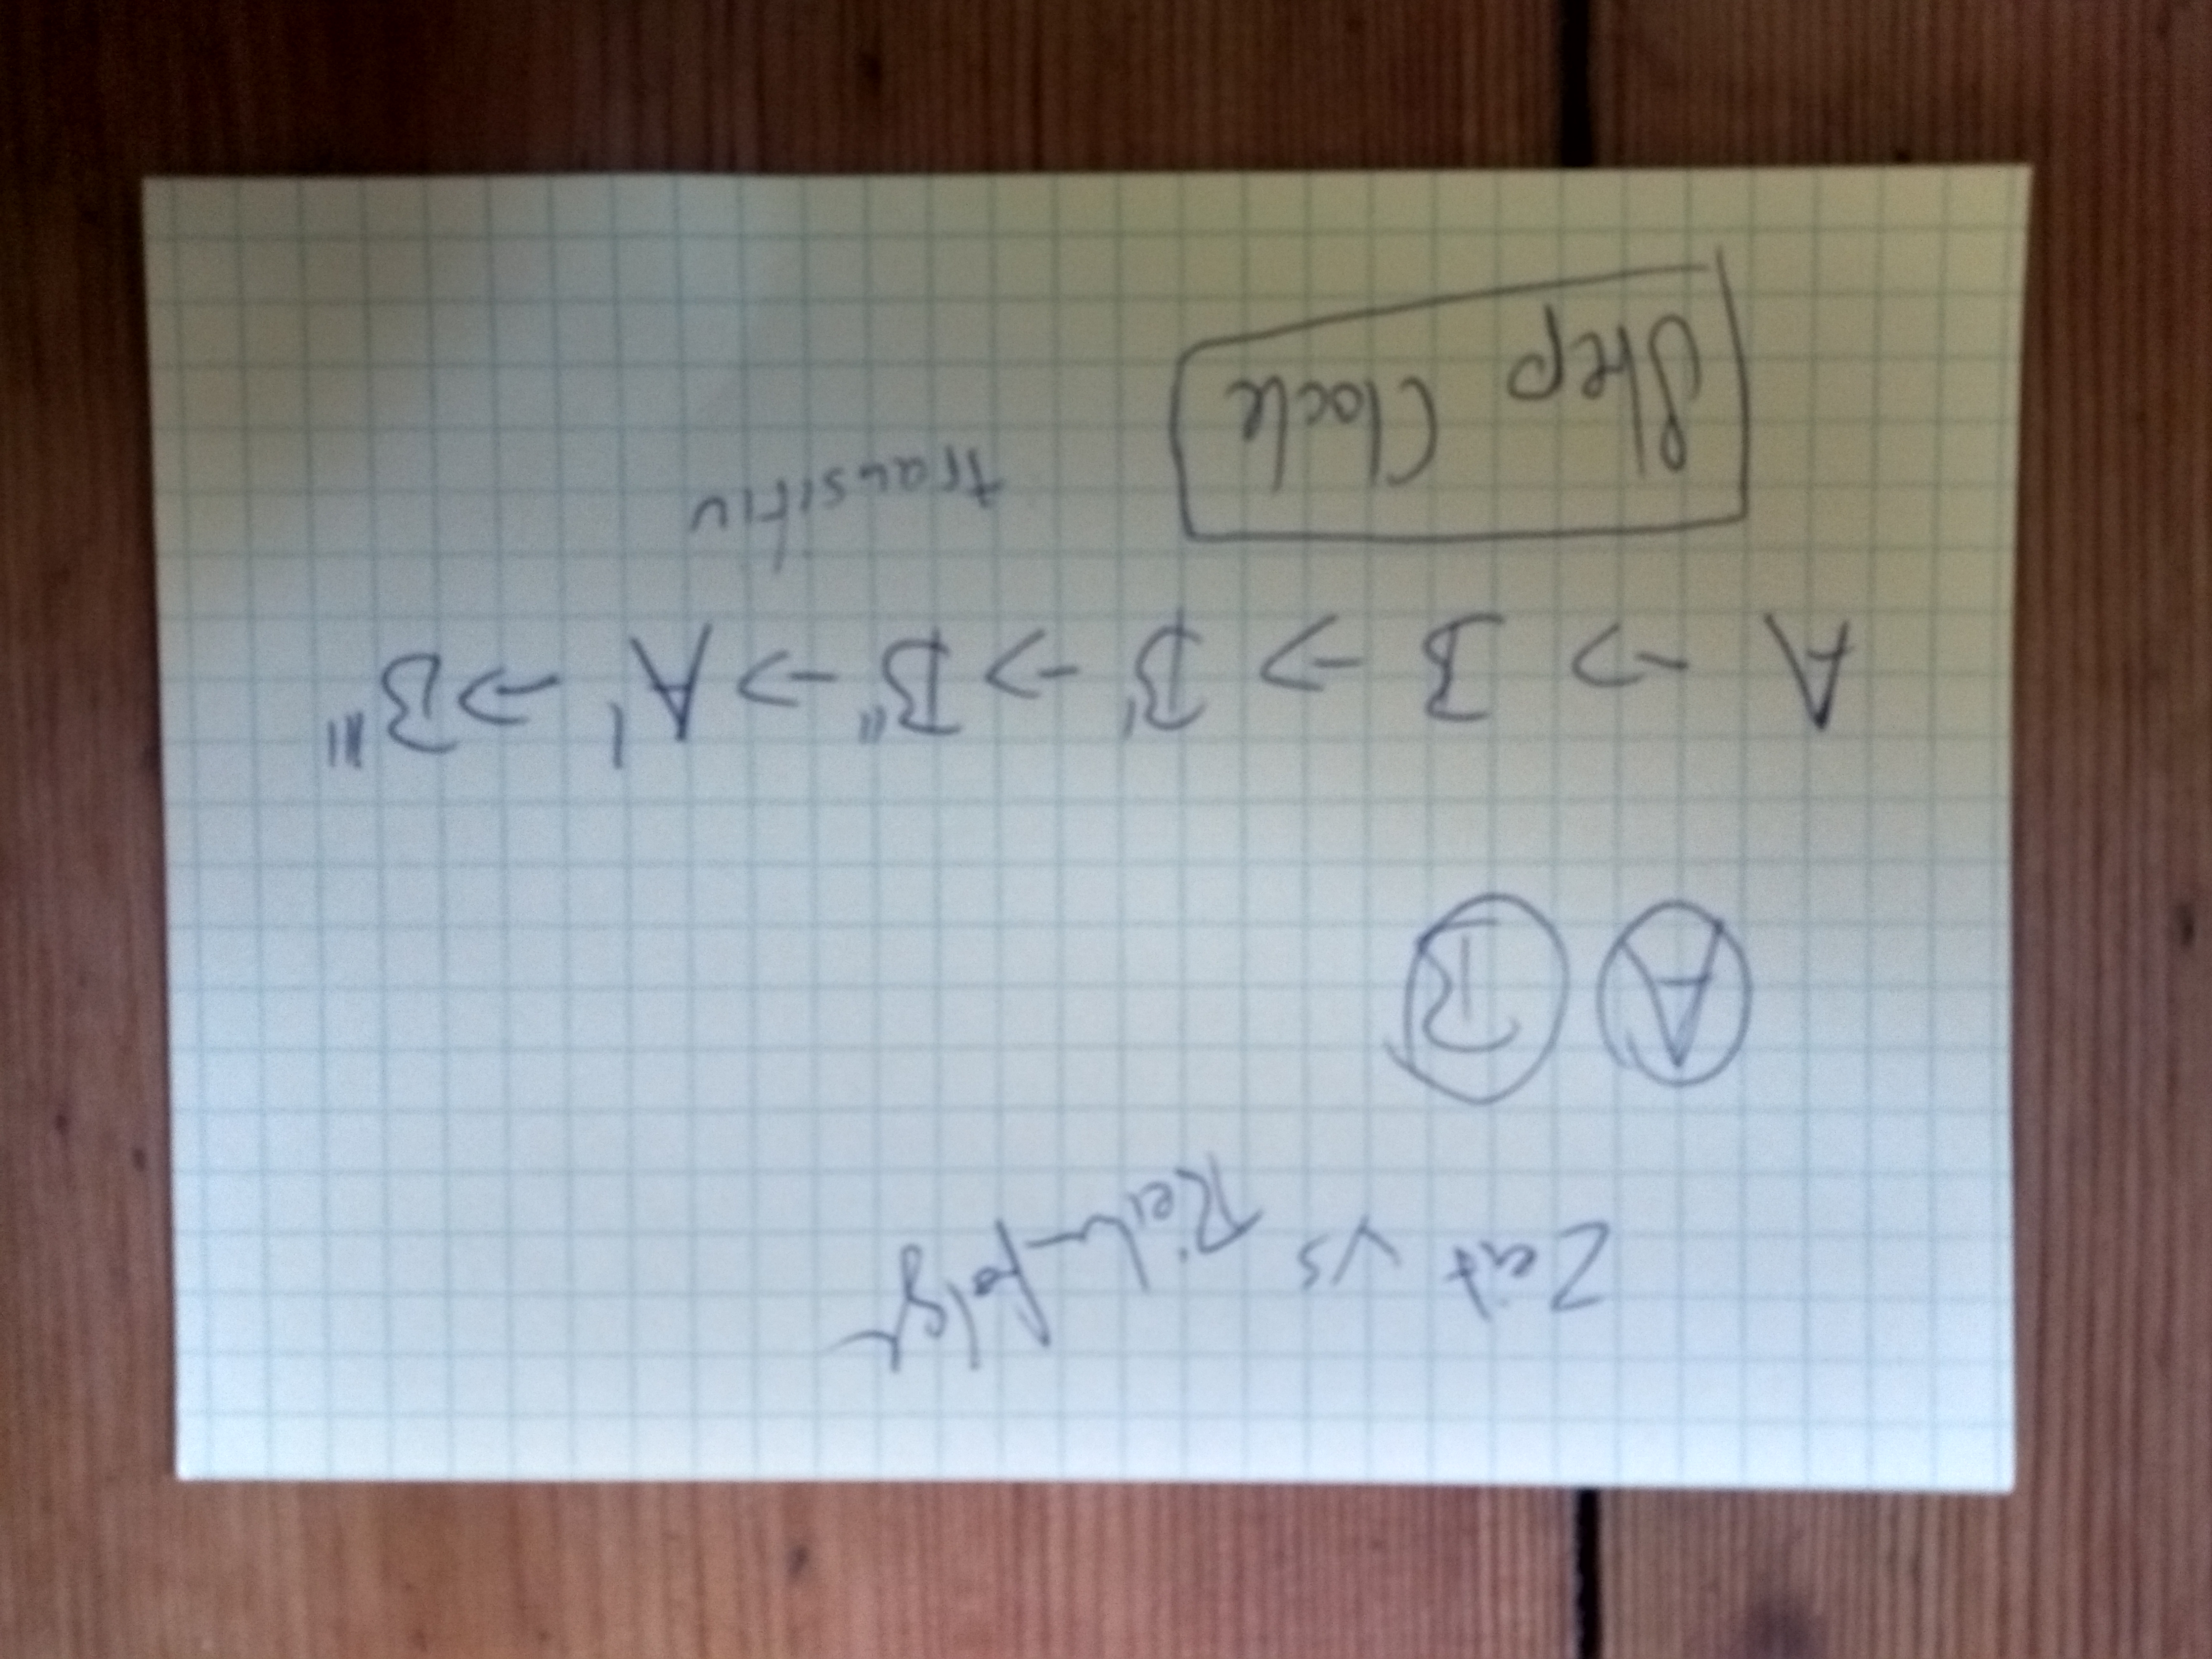 Zeit vs Reihenfolge
A B
A -> B -> B' -> B'' -> A' -> B'''
transitiv
Step Clock